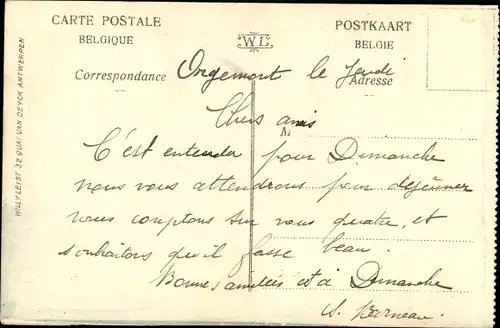 CARTE POSTALE
BELGIQUE
WL
POSTKAART
BELGIE
Correspondance
Adresse
Orgemont le Jeudi
Chers amis
M
C'est entendu pour Dimanche
nous vous attendrons pour déjeuner
nous comptons sur vous quatre, et
souhaitons qu'il fasse beau.
Bonnes amitiés et à Dimanche
WILLY LEIST 32 QUAI VAN DEYCK ANTWERPEN